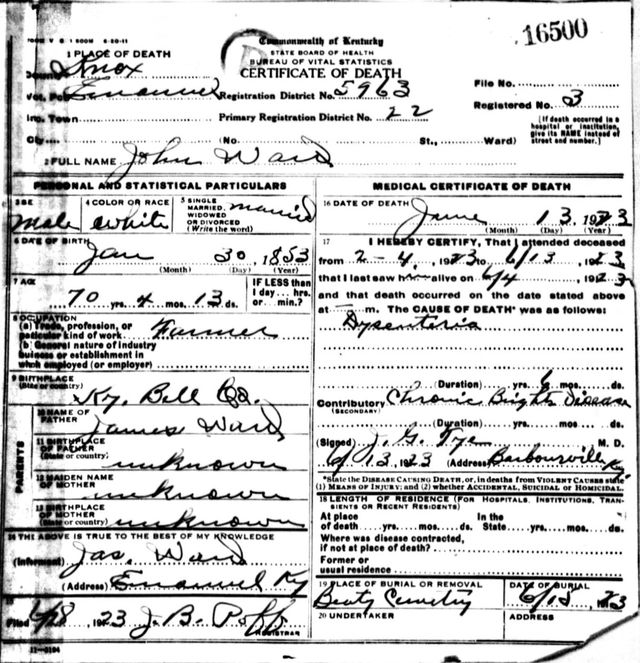 16500
FORM V. S. 1 500M 6-20-11
Commonwealth of Kentucky
STATE BOARD OF HEALTH
BUREAU OF VITAL STATISTICS
CERTIFICATE OF DEATH
1 PLACE OF DEATH
County Knox
Vot. Pct. Emanuel
Registration District No. 5963
File No.
Inc. Town
Primary Registration District No. 22
Registered No. 3
City
No.
St.,
Ward)
[If death occurred in a hospital or institution, give its NAME instead of street and number.]
2 FULL NAME John Ward
PERSONAL AND STATISTICAL PARTICULARS
3 SEX
Male
4 COLOR OR RACE
White
5 SINGLE
MARRIED,
WIDOWED
OR DIVORCED
(Write the word)
Married
6 DATE OF BIRTH
Jan 30, 1853
(Month) (Day) (Year)
7 AGE
70 yrs. 4 mos. 13 ds.
IF LESS than
1 day... hrs.
or... min.?
8 OCCUPATION
(a) Trade, profession, or
particular kind of work Farmer
(b) General nature of industry
business or establishment in
which employed (or employer)
9 BIRTHPLACE
(State or country) Ky. Bell Co.
PARENTS
10 NAME OF
FATHER James Ward
11 BIRTHPLACE
OF FATHER
(State or country) unknown
12 MAIDEN NAME
OF MOTHER unknown
13 BIRTHPLACE
OF MOTHER
(State or country) unknown
14 THE ABOVE IS TRUE TO THE BEST OF MY KNOWLEDGE
(Informant) Jas. Ward
(Address) Emanuel Ky
15
Filed 6/28 1923 J. B. Poff
REGISTRAR
11-3184
MEDICAL CERTIFICATE OF DEATH
16 DATE OF DEATH
June 13, 1923
(Month) (Day) (Year)
17 I HEREBY CERTIFY, That I attended deceased
from 2-4, 1923 to 6/13, 1923
that I last saw him alive on 6/4, 1923
and that death occurred on the date stated above
at m. The CAUSE OF DEATH* was as follows:
Dysenteria
(Duration) yrs. 6 mos. ds.
Contributory Chronic Brights Disease
(SECONDARY)
(Duration) yrs. mos. ds.
(Signed) J. G. Tye M. D.
6/13 1923 (Address) Barboursville Ky.
*State the DISEASE CAUSING DEATH, or, in deaths from VIOLENT CAUSES state
(1) MEANS OF INJURY; and (2) whether ACCIDENTAL, SUICIDAL or HOMICIDAL.
18 LENGTH OF RESIDENCE (FOR HOSPITALS, INSTITUTIONS, TRANSIENTS OR RECENT RESIDENTS)
At place
of death yrs. mos. ds.
In the
State yrs. mos. ds.
Where was disease contracted,
if not at place of death?
Former or
usual residence
19 PLACE OF BURIAL OR REMOVAL
Beaty Cemetry
DATE OF BURIAL
6/15 1923
20 UNDERTAKER
ADDRESS